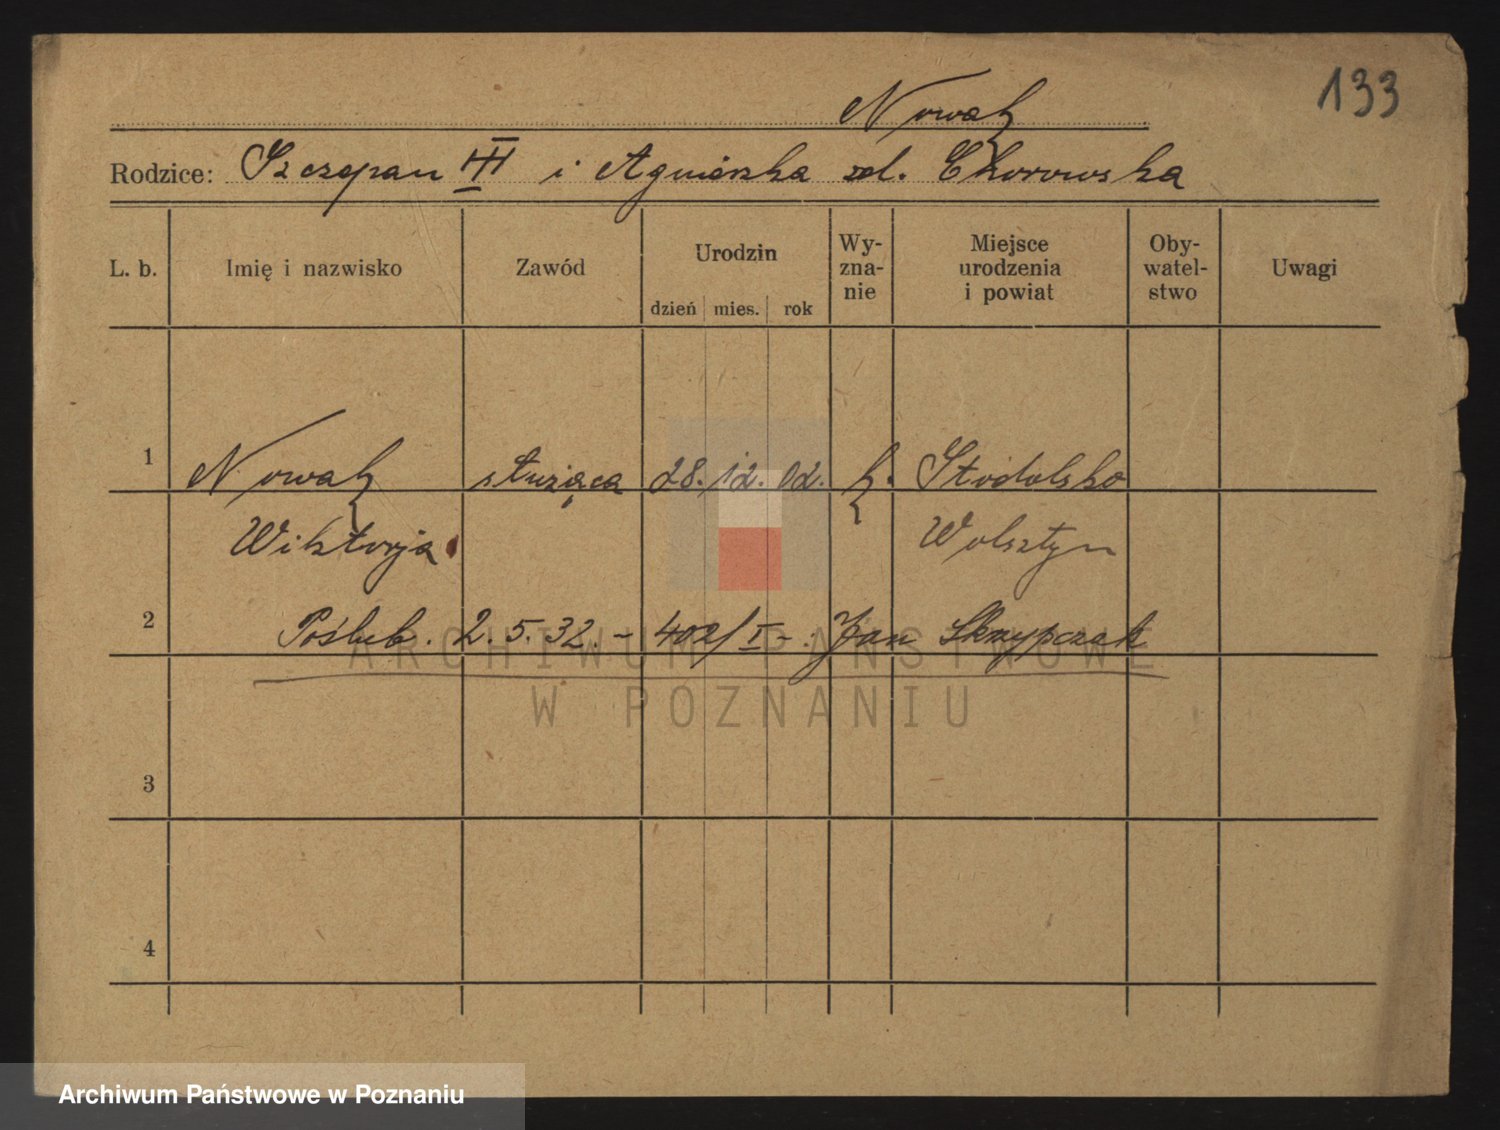 133
Nowak
Rodzice: Szczepan III i Agnieszka zd. Chorowska
L. b. Imię i nazwisko Zawód Urodzin dzień mies. rok Wy-zna-nie Miejsce urodzenia i powiat Oby-watel-stwo Uwagi
1 Nowak służąca 28. 12. 02. k. Stodolsko
Wiktorja Wolsztyn
2 Poślub. 2. 5. 32. - 402/I - : Jan Skrzypczak
3
4
ARCHIWUM PAŃSTWOWE
W POZNANIU
Archiwum Państwowe w Poznaniu